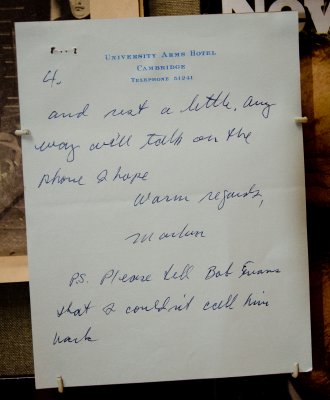 Now
UNIVERSITY ARMS HOTEL
CAMBRIDGE
TELEPHONE 51241
4.
and not a little. Any
way will talk on the
phone I hope
Warm regards,
Marlon
PS. Please tell Bob Evans
that I couldn't call him
back